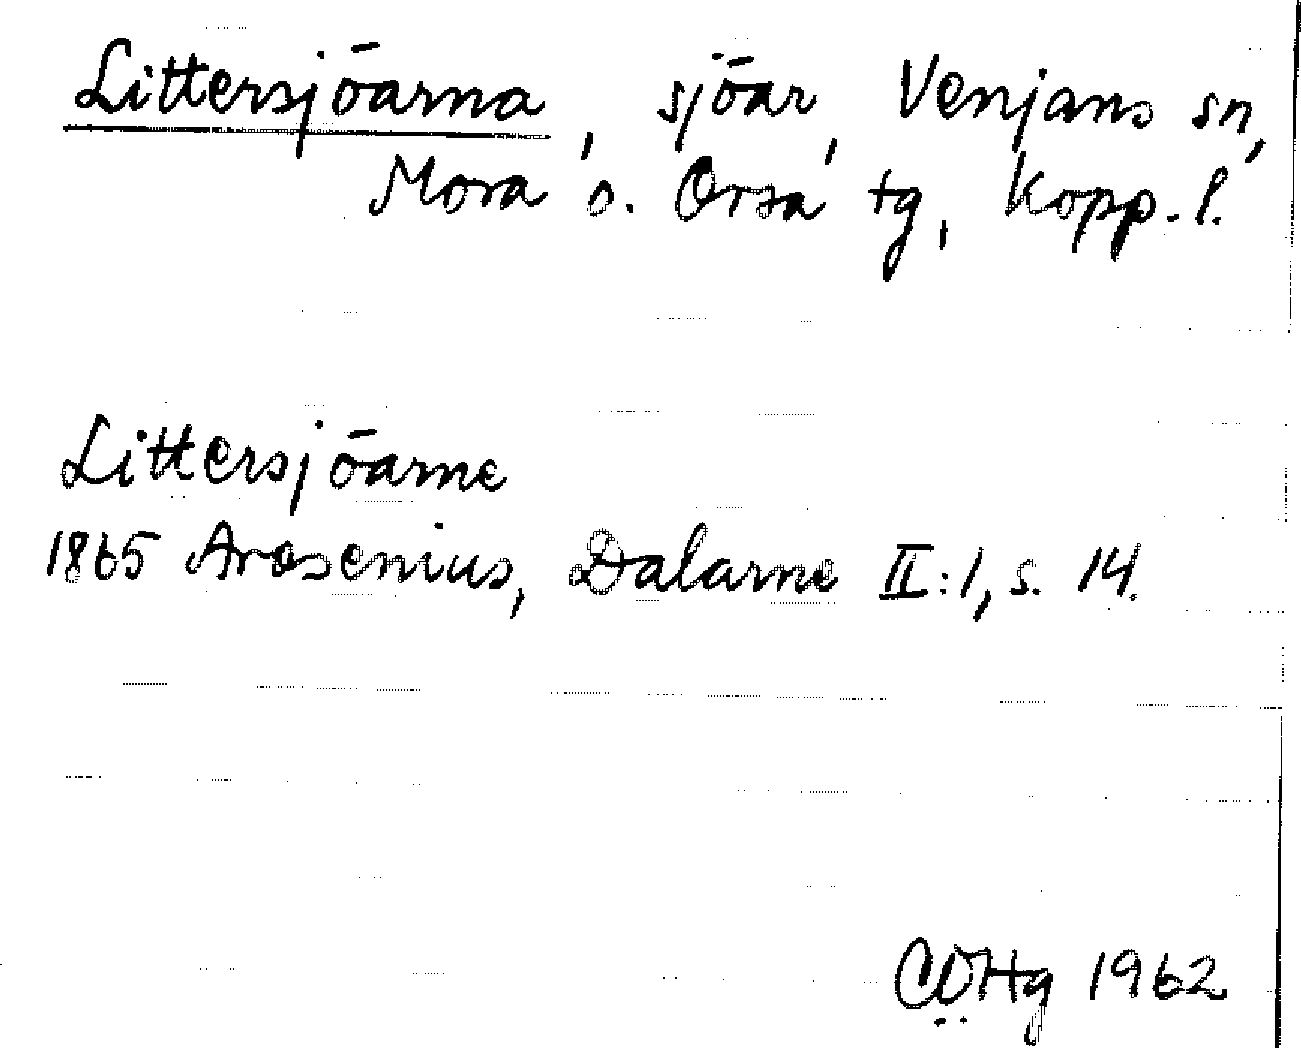 Littersjöarna, sjöar, Venjans sn,
Mora o. Orsa tg, Kopp. l.
Littersjöarne
1865 Arosenius, Dalarne II:1, s. 14.
CDHg 1962